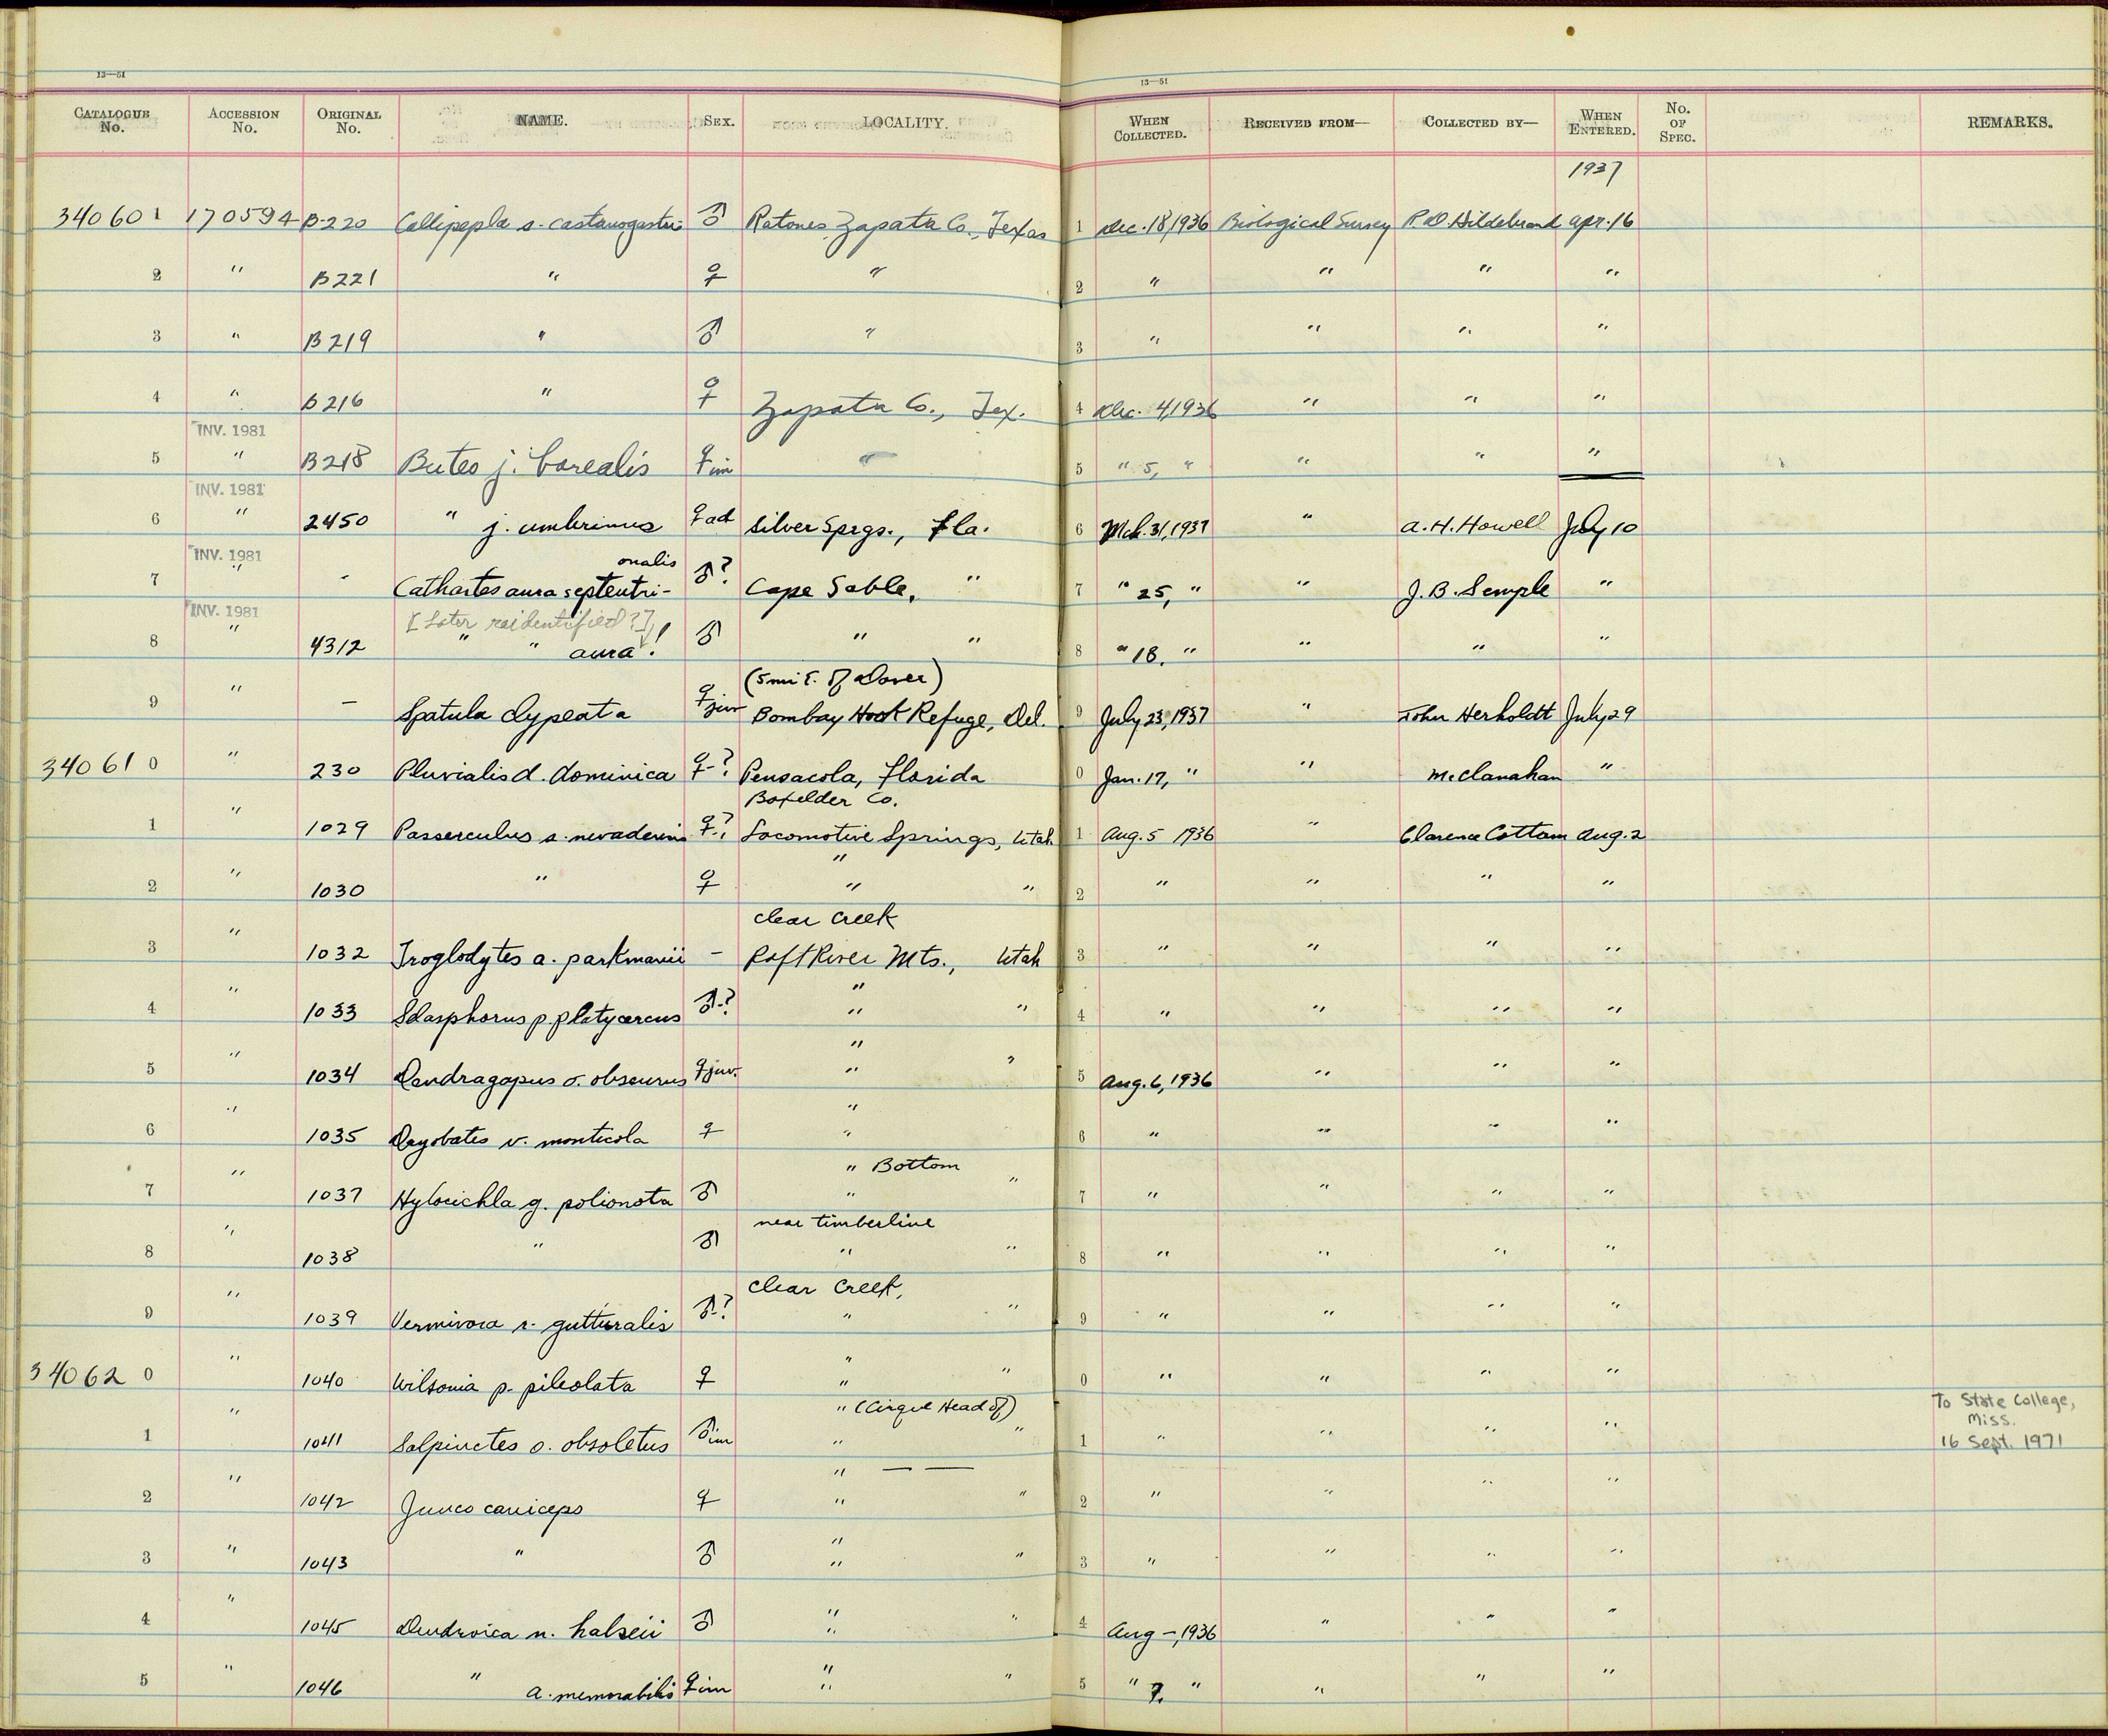 13—51 13—51
CATALOGUE No. ACCESSION No. ORIGINAL No. NAME. SEX. LOCALITY. WHEN COLLECTED. RECEIVED FROM— COLLECTED BY— WHEN ENTERED. No. OF SPEC. REMARKS.
1937
340601 170594 B-220 Callipepla s. castanogastris ♂ Ratones, Zapata Co., Texas 1 Dec. 18, 1936 Biological Survey P.D. Hildebrand Apr. 16
2 " B221 " ♀ " 2 " " " "
3 " B219 " ♂ " 3 " " " "
4 " B216 " ♀ Zapata Co., Tex. 4 Dec. 4, 1936 " " "
INV. 1981
5 " B218 Buteo j. borealis ♀ im " 5 " 5, " " " "
INV. 1981
6 " 2450 " j. umbrinus ♀ ad Silver Sprgs., Fla. 6 Mch. 31, 1937 " A. H. Howell July 10
INV. 1981 onalis
7 " - Cathartes aura septentri- ♂? Cape Sable, " 7 " 25, " " J. B. Semple "
INV. 1981 [Later reidentified?]
8 " 4312 " " aura! ♂ " " 8 " 18, " " " "
(5 mi E. of Dover)
9 " — Spatula clypeata ♀ juv Bombay Hook Refuge, Del. 9 July 23, 1937 " John Herholdt July 29
340610 " 230 Pluvialis d. dominica ♀-? Pensacola, Florida 0 Jan. 17, " " McClanahan "
Boxelder Co.
1 " 1029 Passerculus s. nevadensis ♀-? Locomotive Springs, Utah 1 Aug. 5 1936 " Clarence Cottam Aug. 2
"
2 " 1030 " ♀ " " 2 " " " "
Clear Creek
3 " 1032 Troglodytes a. parkmanii - Raft River Mts., Utah 3 " " " "
"
4 " 1033 Selasphorus p. platycercus ♂-? " " 4 " " " "
"
5 " 1034 Dendragapus o. obscurus ♀ juv. " " 5 Aug. 6, 1936 " " "
"
6 " 1035 Dryobates v. monticola ♀ " 6 " " " "
" Bottom
7 " 1037 Hylocichla g. polionota ♂ " " 7 " " " "
near timberline
8 " 1038 " ♂ " " 8 " " " "
Clear Creek,
9 " 1039 Vermivora r. gutturalis ♂-? " " 9 " " " "
"
340620 " 1040 Wilsonia p. pileolata ♀ " " 0 " " " "
" (Cirque Head of) To State College, Miss.
1 " 1041 Salpinctes o. obsoletus ♂ im " " 1 " " " " 16 Sept. 1971
" — —
2 " 1042 Junco caniceps ♀ " " 2 " " " "
"
3 " 1043 " ♂ " " 3 " " " "
"
4 " 1045 Dendroica n. halseii ♂ " " 4 Aug —, 1936 " " "
"
5 " 1046 " a. memorabilis ♀ im " " 5 " 7. " " " "